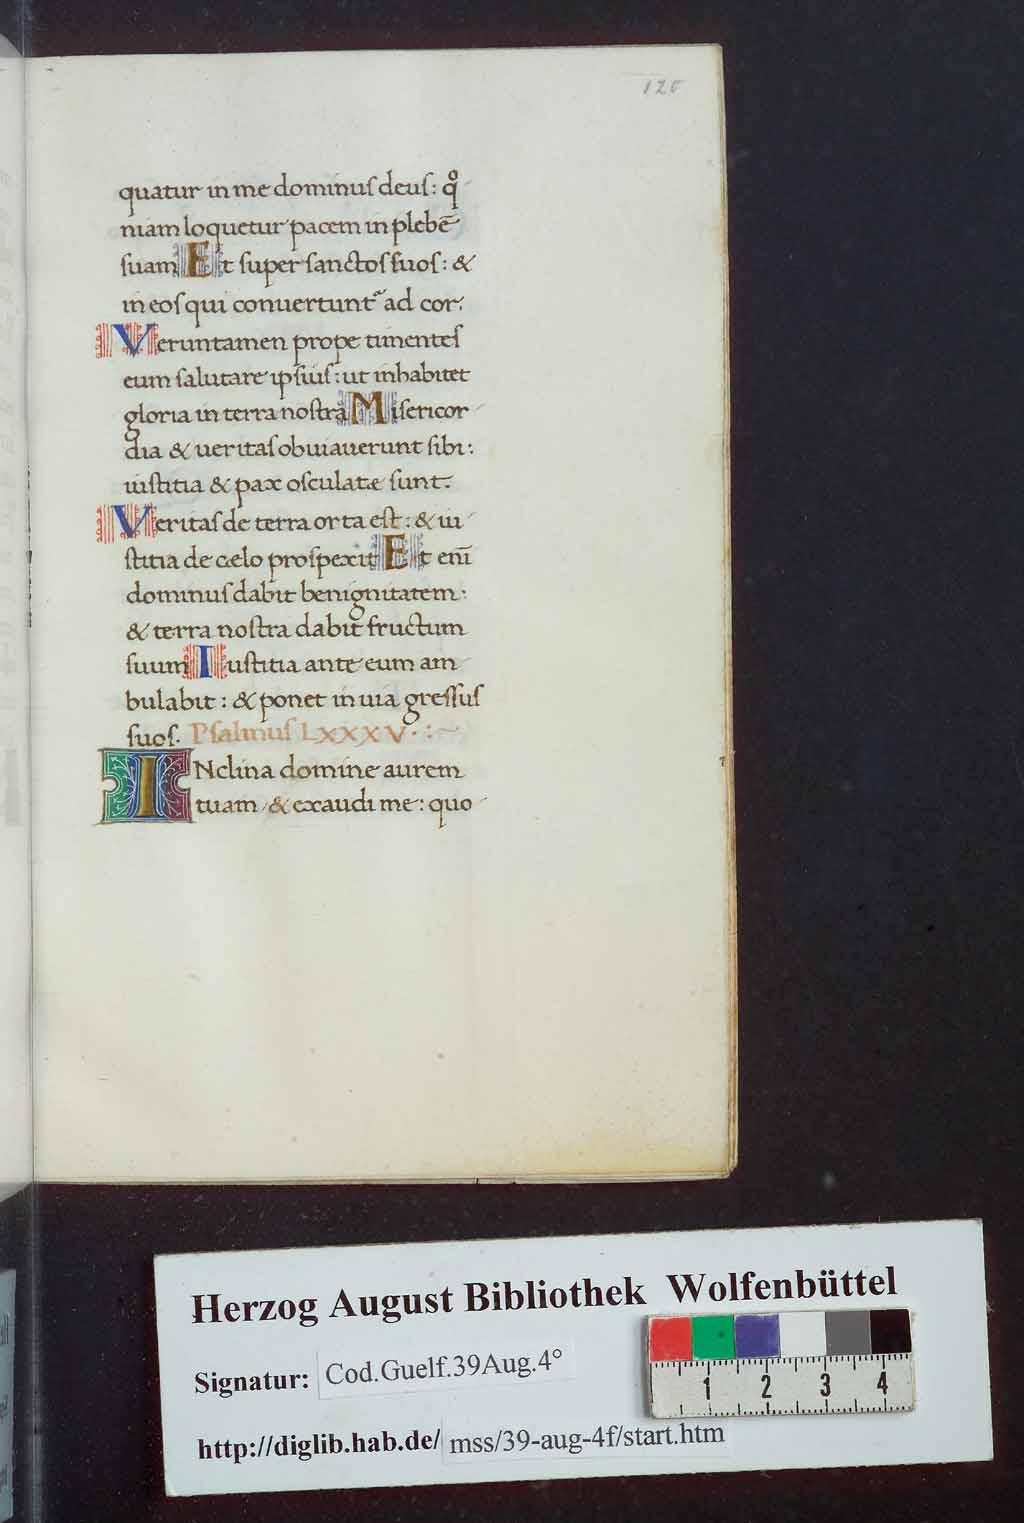 120
quatur in me dominus deus: qͦ
niam loquetur pacem in plebē
suam Et super sanctos suos: &
in eos qui conuertuntᷣ ad cor.
Veruntamen prope timentes
eum salutare ipsius: ut inhabitet
gloria in terra nostra Misericor
dia & ueritas obuiauerunt sibi:
iustitia & pax osculatæ sunt.
Veritas de terra orta est: & iu
stitia de cælo prospexit Et eni͞
dominus dabit benignitatem:
& terra nostra dabit fructum
suum Iustitia ante eum am
bulabit: & ponet in uia gressus
suos. Psalmus LXXXV.
INclina domine aurem
tuam & exaudi me: quo
Herzog August Bibliothek Wolfenbüttel
Signatur: Cod.Guelf.39Aug.4°
1 2 3 4
http://diglib.hab.de/ mss/39-aug-4f/start.htm